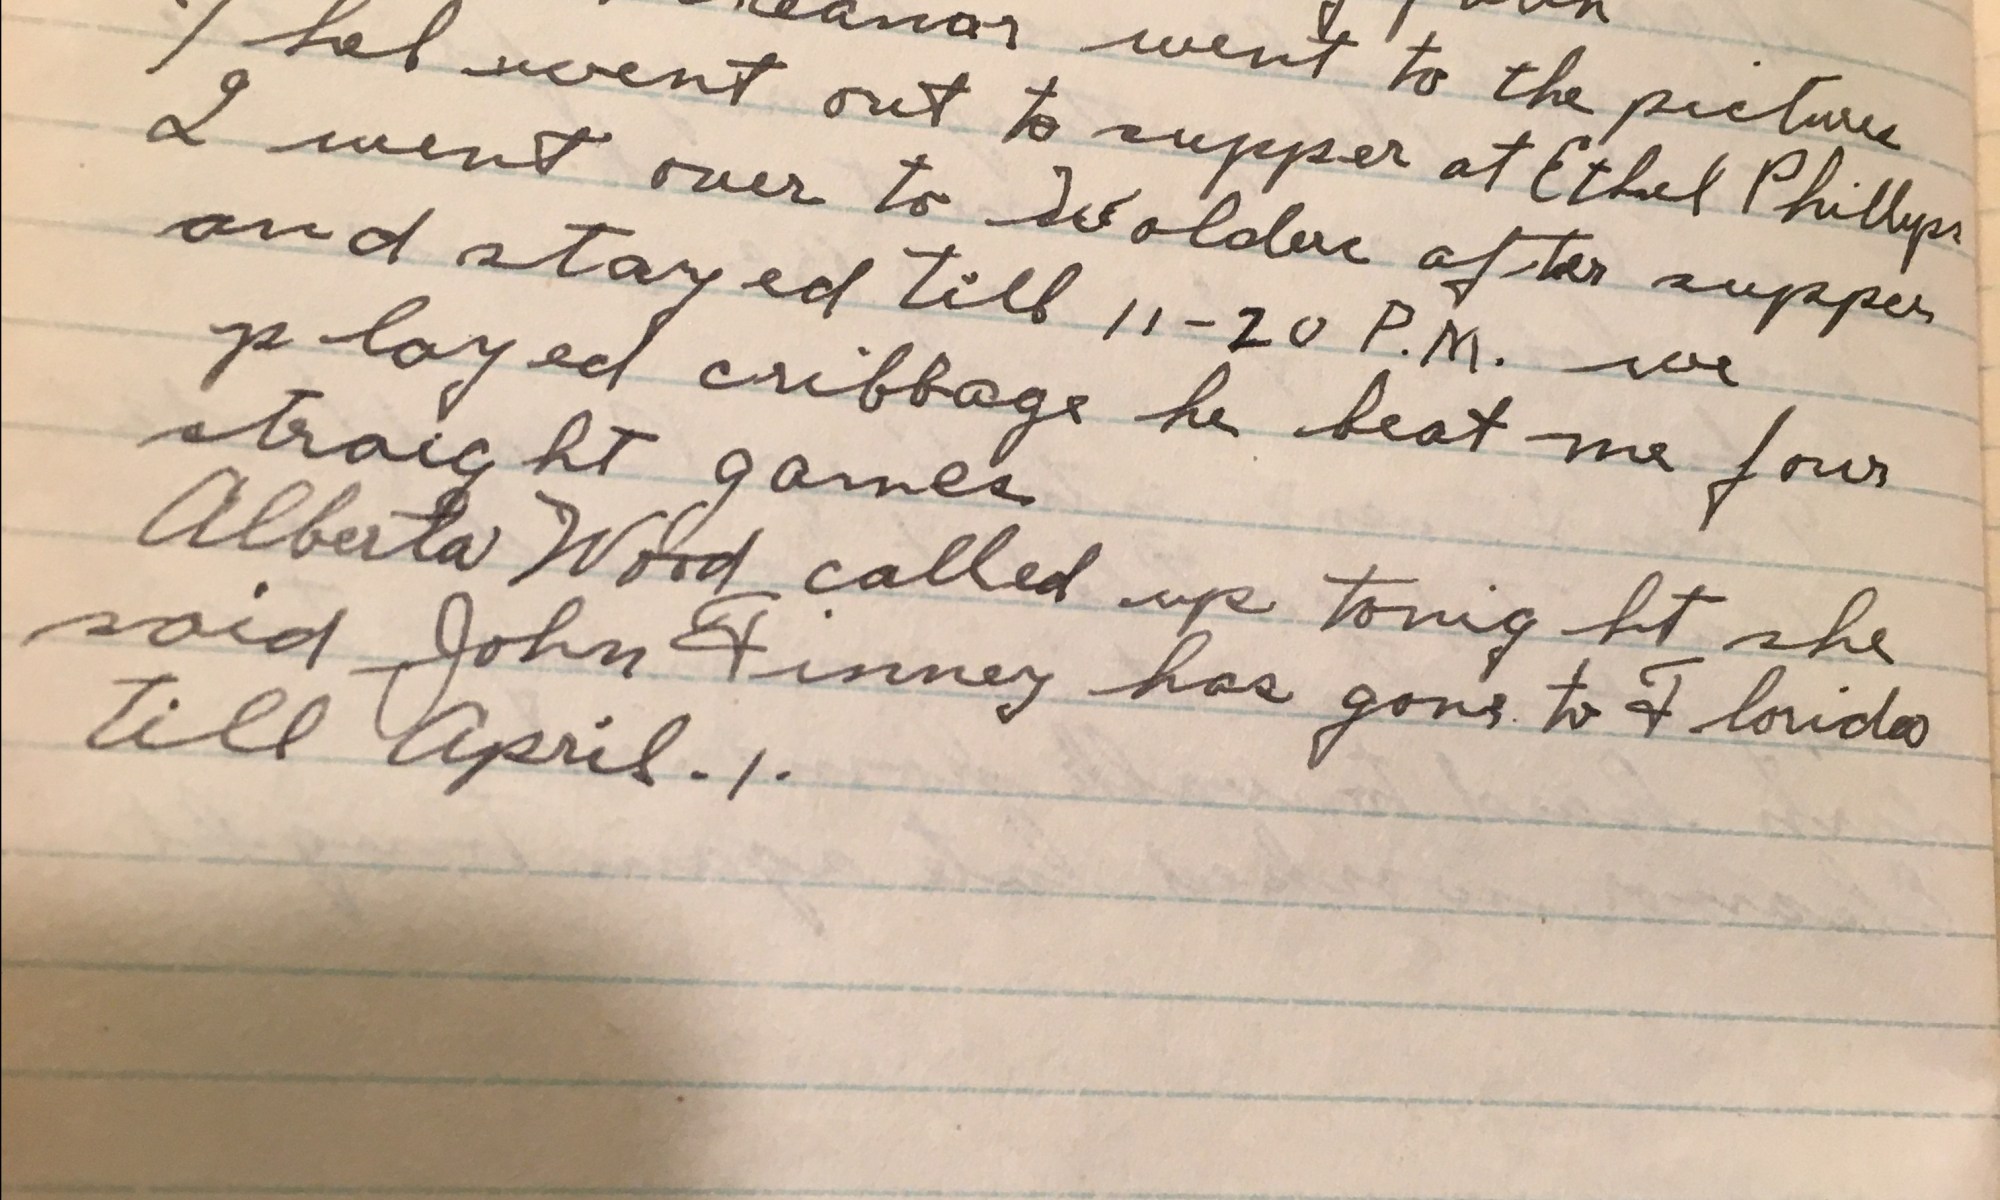 Eleanor went to the pictures
Thel went out to supper at Ethel Phillyps
I went over to after supper
and stayed till 11-20 P.M. we
played cribbage he beat me four
straight games
Alberta Wood called up tonight she
said John Finney has gone to Florida
till April. 1.